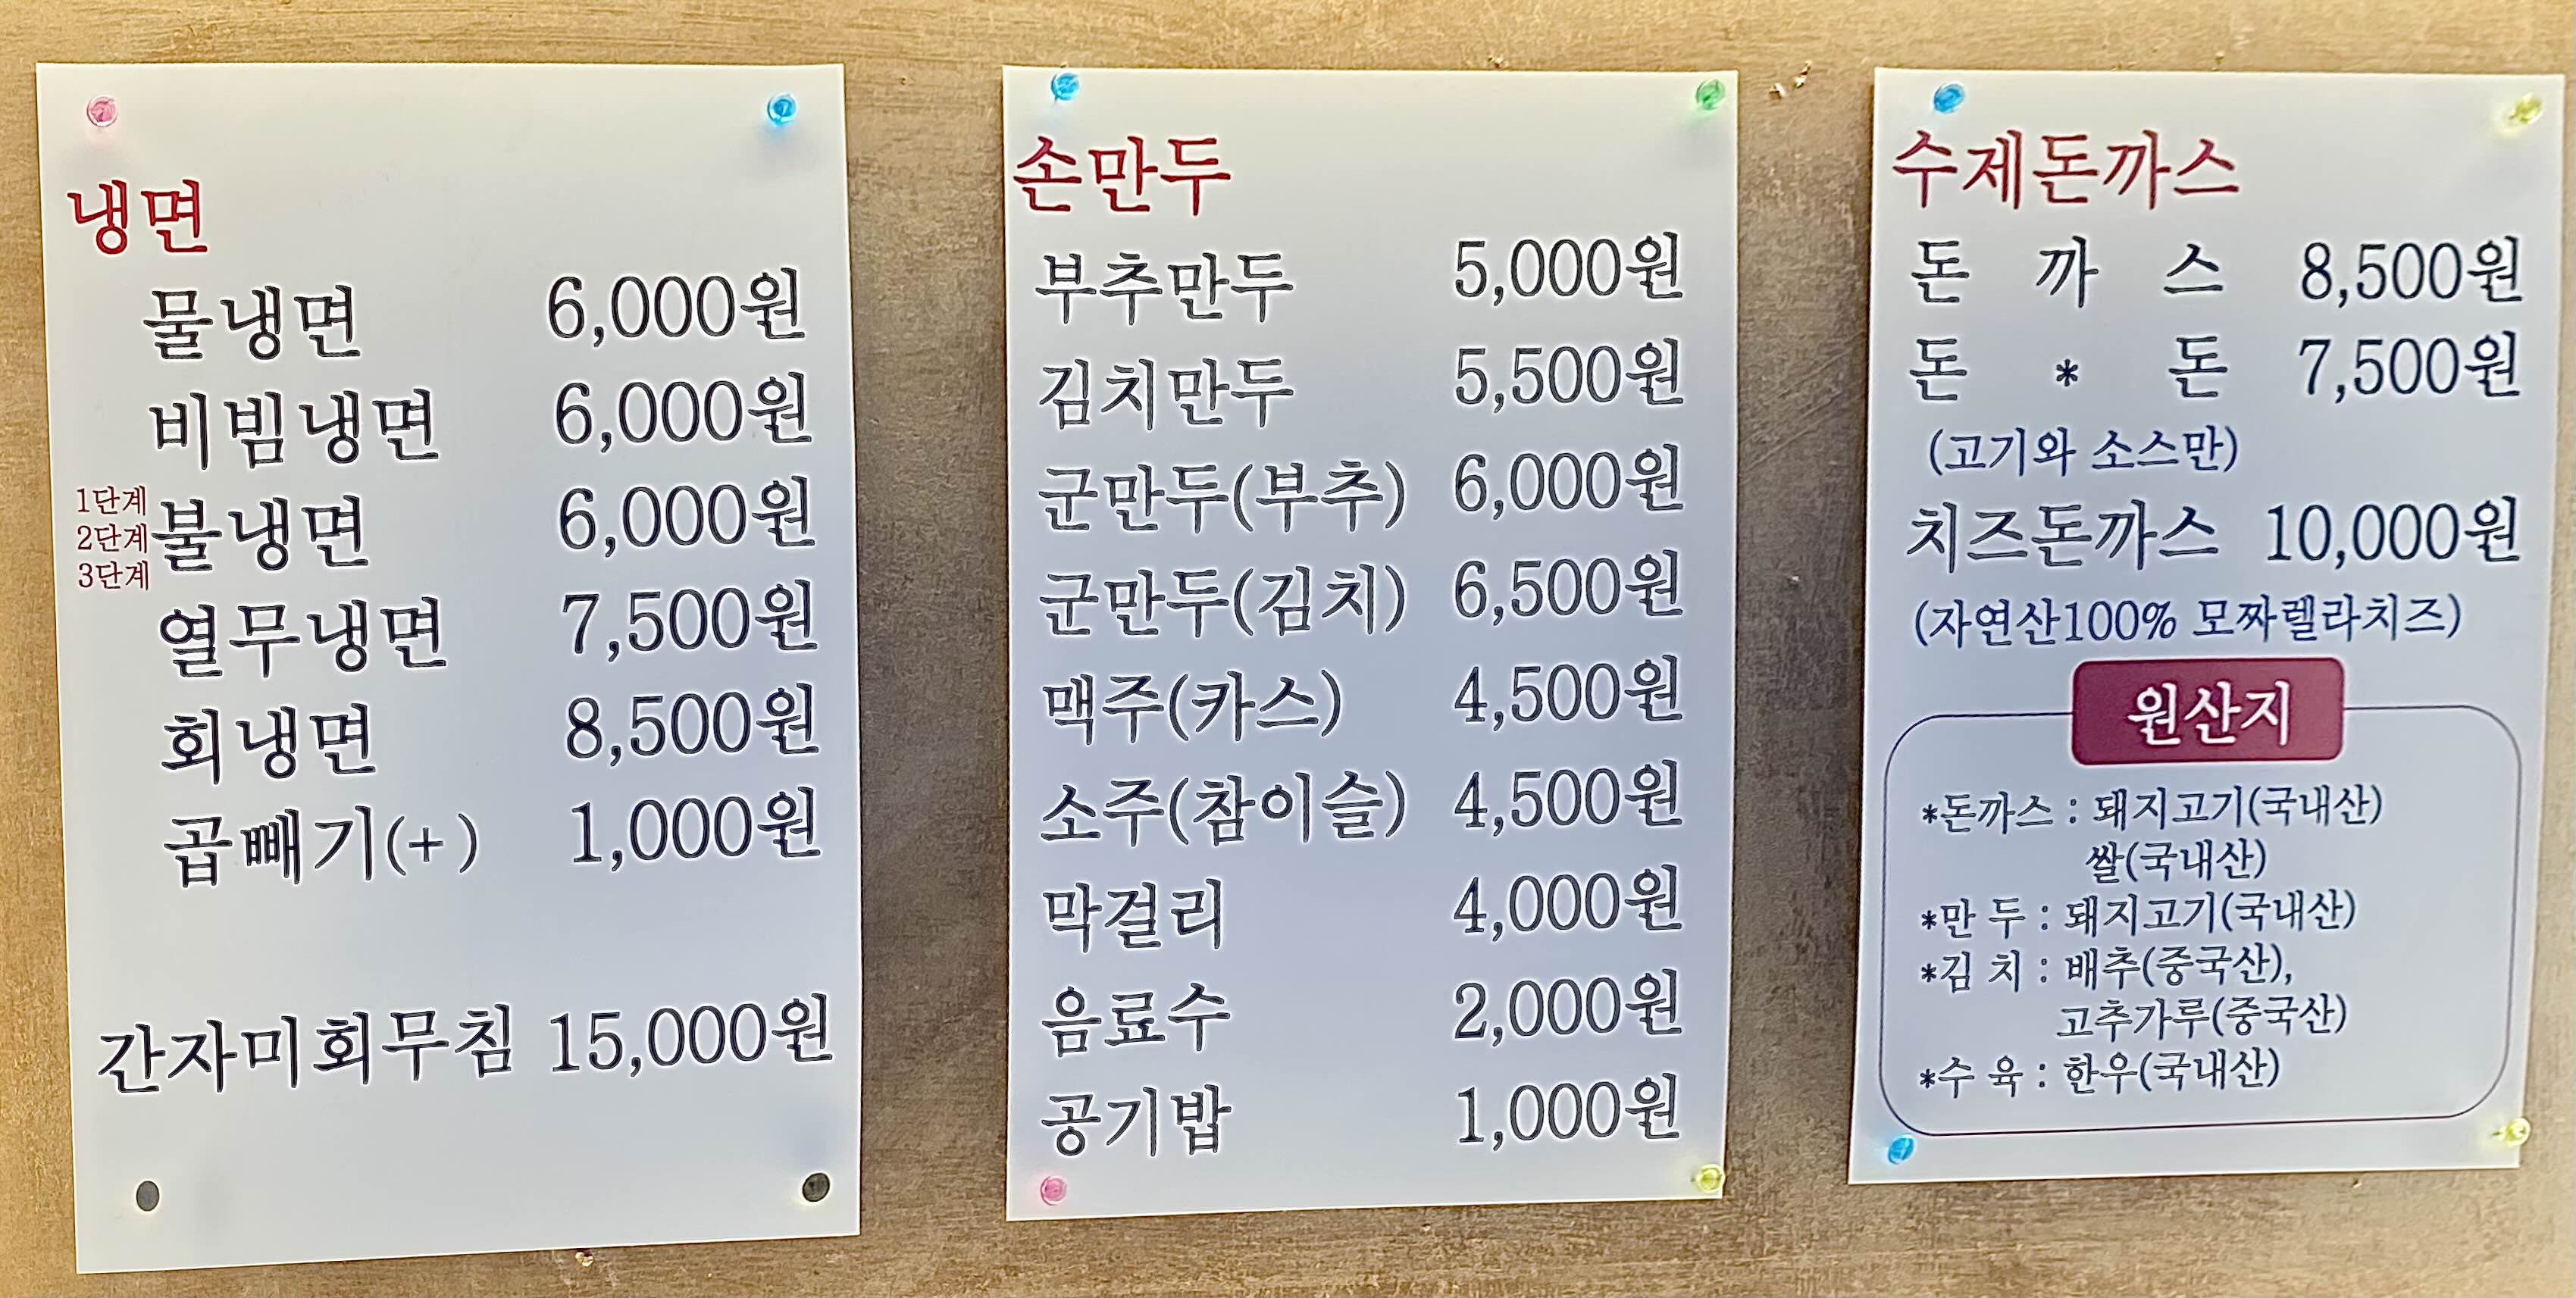 냉면
물냉면 6,000원
비빔냉면 6,000원
1단계
2단계
3단계
불냉면 6,000원
열무냉면 7,500원
회냉면 8,500원
곱빼기(+) 1,000원
간자미회무침 15,000원
손만두
부추만두 5,000원
김치만두 5,500원
군만두(부추) 6,000원
군만두(김치) 6,500원
맥주(카스) 4,500원
소주(참이슬) 4,500원
막걸리 4,000원
음료수 2,000원
공기밥 1,000원
수제돈까스
돈 까 스 8,500원
돈 * 돈 7,500원
(고기와 소스만)
치즈돈까스 10,000원
(자연산100% 모짜렐라치즈)
원산지
*돈까스 : 돼지고기(국내산)
쌀(국내산)
*만 두 : 돼지고기(국내산)
*김 치 : 배추(중국산),
고추가루(중국산)
*수 육 : 한우(국내산)